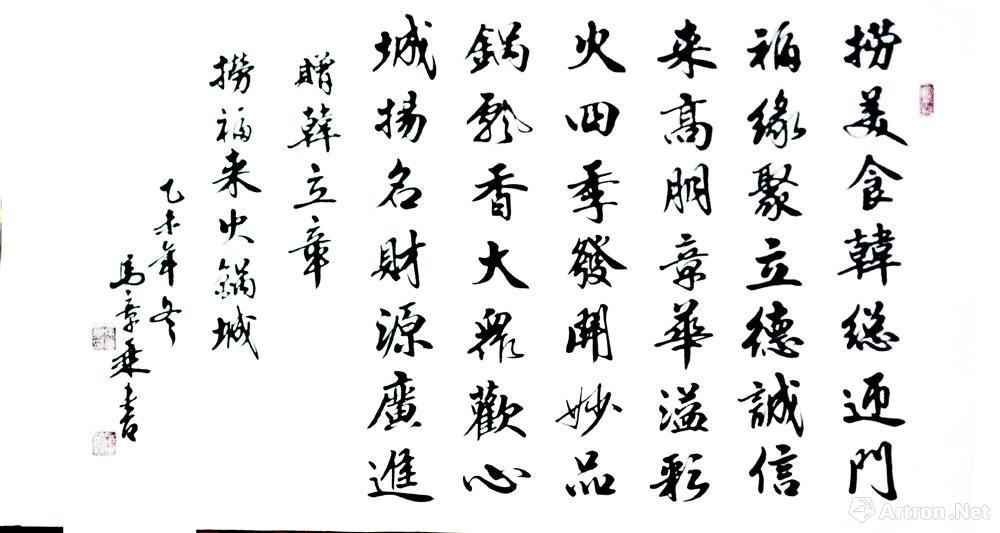 捞美食韓總迎門
福緣聚立德誠信
来高朋章華溢彩
火四季發開妙品
鍋飘香大眾歡心
城揚名財源廣進
贈韓立章
撈福来火鍋城
乙未年冬
馬章乘書
Artron.Net